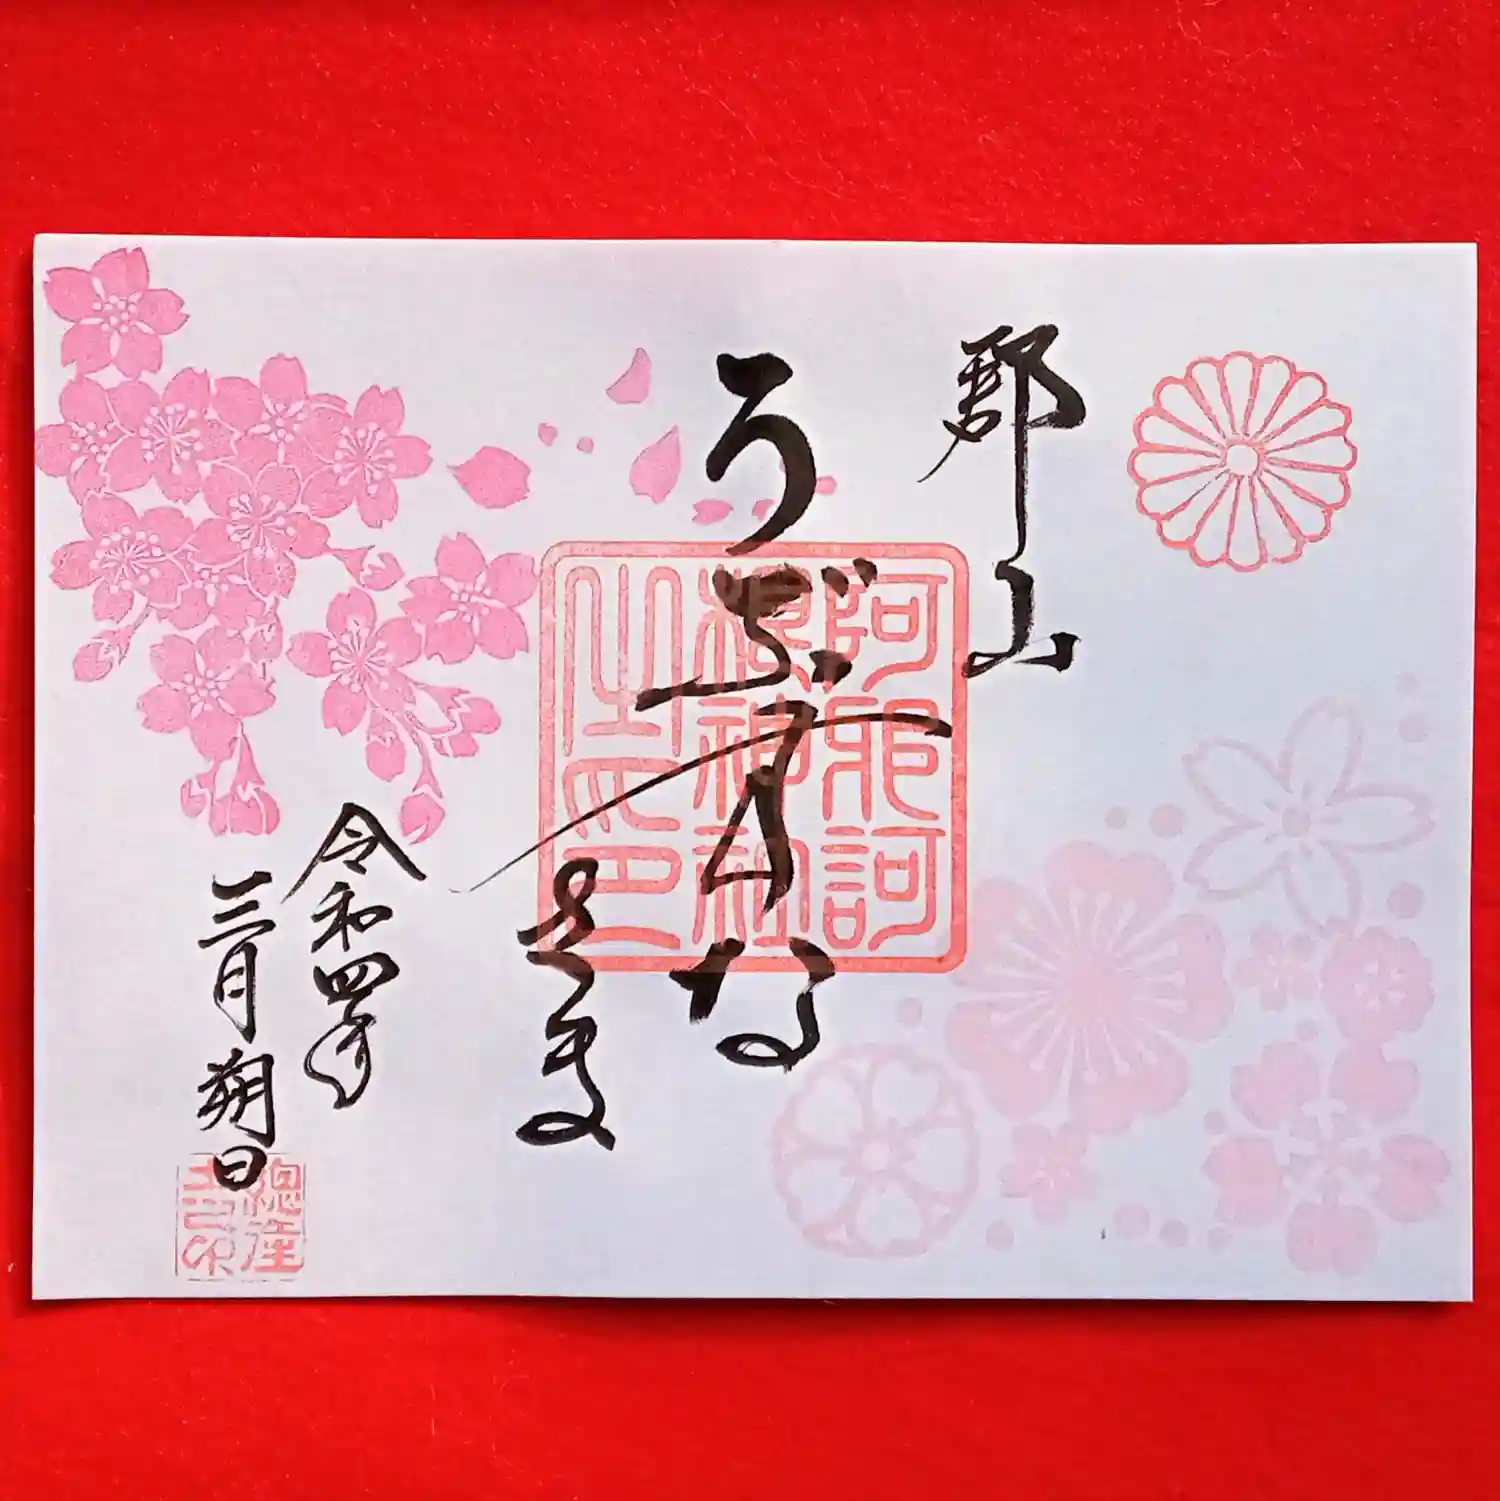 郡山
うぶすな
さま
令和四年
三月朔日
阿邪訶
根神社
之印